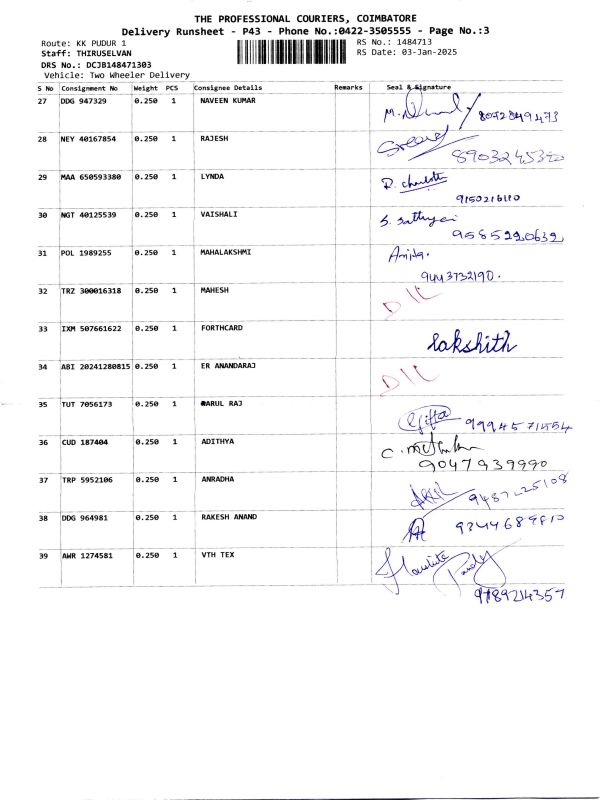 THE PROFESSIONAL COURIERS, COIMBATORE
Delivery Runsheet - P43 - Phone No.:0422-3505555 - Page No.:3
Route: KK PUDUR 1 RS No.: 1484713
Staff: THIRUSELVAN RS Date: 03-Jan-2025
DRS No.: DCJB148471303
Vehicle: Two Wheeler Delivery
S No Consignment No Weight PCS Consignee Details Remarks Seal & Signature
27 DDG 947329 0.250 1 NAVEEN KUMAR
28 NEY 40167854 0.250 1 RAJESH
8903245320
29 MAA 650593380 0.250 1 LYNDA R. Charlotte
9150216110
30 NGT 40125539 0.250 1 VAISHALI S. Sathya
9585220632
31 POL 1989255 0.250 1 MAHALAKSHMI Anita.
9443732190.
32 TRZ 300016318 0.250 1 MAHESH D/L
33 IXM 507661622 0.250 1 FORTHCARD Lakshith
34 ABI 20241280815 0.250 1 ER ANANDARAJ D/L
35 TUT 7056173 0.250 1 ARUL RAJ
9994571454
36 CUD 187404 0.250 1 ADITHYA
9047939990
37 TRP 5952106 0.250 1 ANRADHA
9487225108
38 DDG 964981 0.250 1 RAKESH ANAND 9344689810
39 AWR 1274581 0.250 1 VTH TEX
9789214357